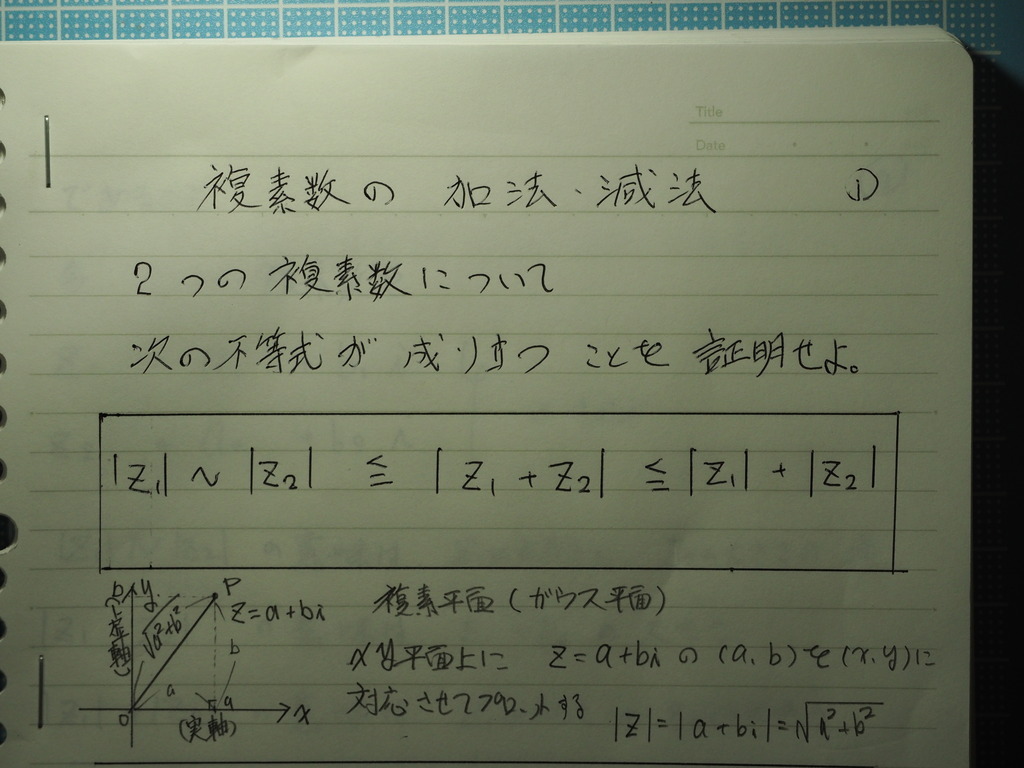 Title
Date
複素数の 加法・減法 ①
2つの複素数について
次の不等式が成り立つことを証明せよ。
|Z₁| ~ |Z₂| ≦ |Z₁ + Z₂| ≦ |Z₁| + |Z₂|
b y P
(虚軸) √a²+b² Z=a+bi
b
a
0 a x
(実軸)
複素平面(ガウス平面)
xy平面上に Z=a+biの(a,b)を(x,y)に
対応させてプロットする
|Z|=|a+bi|=√a²+b²